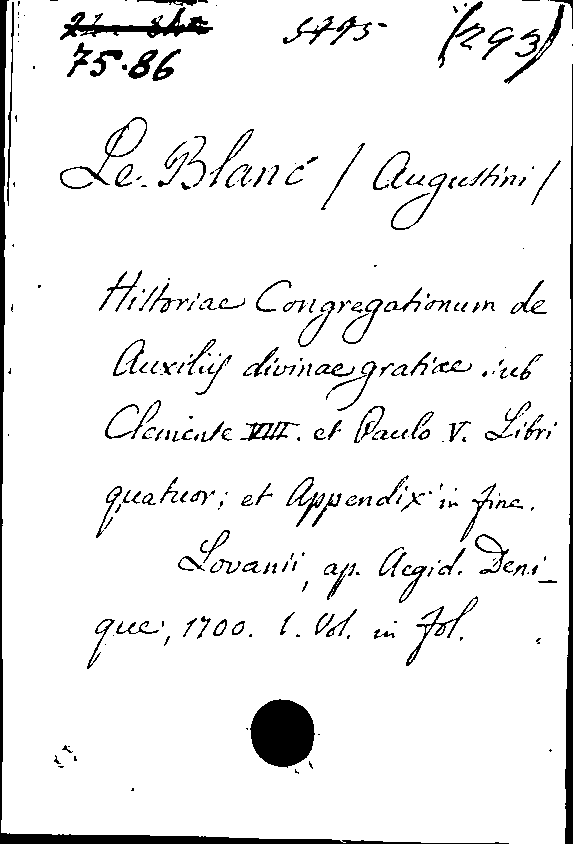 5775 (293)
75.86
Le Blanc / Augustini /
Historiae Congregationum de
Auxiliis divinae gratiae sub
Clemente VIII. et Paulo V. Libri
quatuor; et Appendix in fine.
Lovanii, ap. Aegid. Deni_
que, 1700. 1. Vol. in fol.